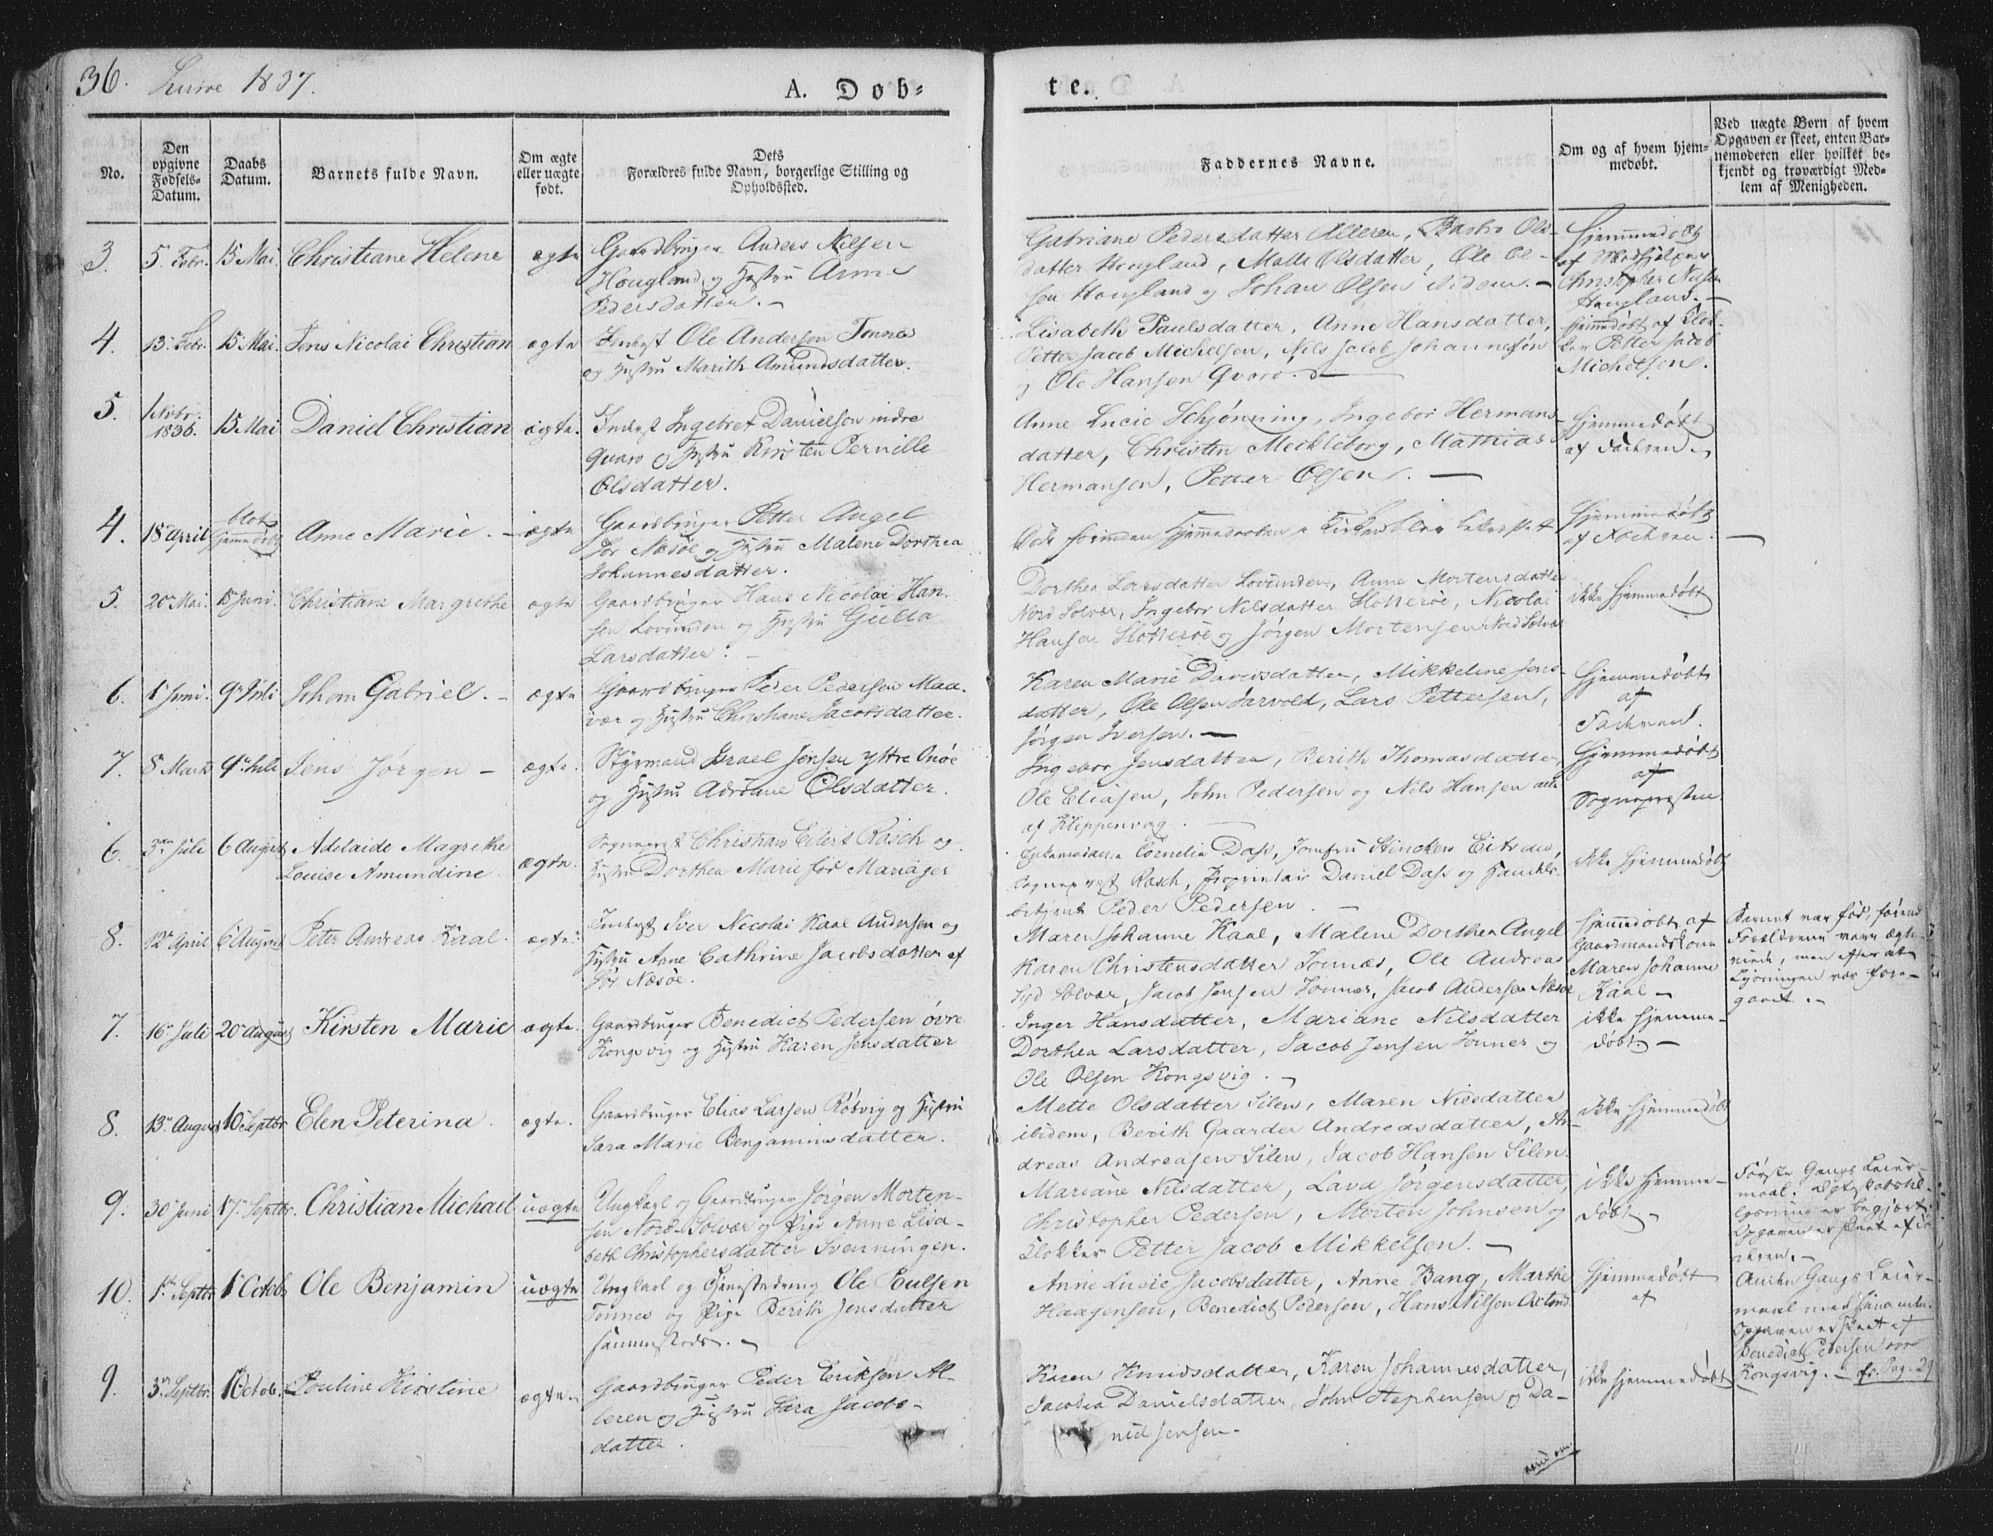 36. Lurøe 1837.
A. Dob=
te.
No.
Den opgivne Fødsels-Datum.
Daabs Datum.
Barnets fulde Navn.
Om ægte eller uægte født.
Dets Forældres fulde Navn, borgerlige Stilling og Opholdssted.
Faddernes Navne.
Om og af hvem hjemmedøbt.
Ved uægte Børn af hvem Opgaven er skeet, enten Barnemoderen eller hvilket bekjendt og troværdigt Medlem af Menigheden.
3. 5. Febr. 15 Mai. Christiane Helene ægte Gaardbruger Anders Nilsen
Hougland og Hustru Anne
Pedersdatter. –
Gabriane Pedersdatter Alleren, Barbro Ols-
datter Hougland, Malle Olsdatter, Ole Ol-
sen Hougland og Johan Olsen ibidem. –
Hjemmedøbt
af
Christopher Nilsen
Hougland. –
4. 13. Febr. 15 Mai. Jens Nicolai Christian ægte Inderst Ole Andersen Tonnes
og Hustru Marith Amundsdatter.
Lisabeth Paulsdatter, Anne Hansdatter,
Petter Jacob Michelsen, Nils Jacob Johannesen
og Ole Hansen Qvarø. –
Hjemmedøbt af Klok-
ker Petter Jacob
Michelsen.
5. 1 Novbr. 1836. 15 Mai Daniel Christian ægte. Inderst Ingebret Danielsen indre
Qvarø og Hustru Kirsten Pernille
Olsdatter.
Anne Lucie Schjønning, Ingebor Hermans-
datter, Christen Mechleborg, Mathias
Hermansen, Petter Olsen. –
Hjemmedøbt
af Faderen.
4. 18 April blot hjemmedøbt Anne Marie. – ægte Gaardbruger Petter Angel
Sør Næsøe og Hustru Malene Dorthea
Johannesdatter.
Døde forinden Hjemmedaaben i Kirken blev bekræftet
Hjemmedøbt
af Faderen. –
5. 20 Mai. 18 Juni. Christiane Margrethe ægte Gaardbruger Hans Nicolai Han-
sen Lovunden og Hustru Gulla
Larsdatter. –
Dorthea Larsdatter Lovunden, Anne Mortensdatter
Nord Solvær, Ingebor Nilsdatter Slotterøe, Nicolai
Hansen Slotterøe og Jørgen Mortensen Nord Solvær
ikke hjemmedøbt
6. 1 Juni. 9 Juli Johan Gabriel. – ægte Gaardbruger Peder Pedersen Maa-
vær og Hustru Christiane Jacobsdatter.
Karen Marie Davidsdatter, Mikkeline Jens-
datter, Ole Olsen Sarvold, Lars Pettersen,
Jørgen Iversen. –
Hjemmedøbt
af
Faderen.
7. 8 Marts 9 Juli Jens Jørgen – ægte. Styrmand Israel Jensen yttre Onøe
og Hustru Adriane Olsdatter.
Ingebor Jensdatter, Berith Thomasdatter,
Ole Eliasen, John Pedersen og Nils Hansen alle
af Klippenvog.
Hjemmedøbt
af
Sognepresten.
6. 3 Juli 6 August Adelaide Magrethe
Louise Amundine. ægte. Sognepræst Christian Eilert Rasch og
Hustru Dorthea Marie fød Mariager
Cornelia Dass, Jomfru Stincken
Sognepræst Rasch, Proprietair Daniel Dass og Handels-
betjent Peder Pedersen. –
ikke hjemmedøbt
8. 12 April 6 August Peter Andreas Kaal. ægte. Inderst Iver Nicolai Kaal Andersen og
Hustru Anne Cathrine Jacobsdatter af
Sør Næsøe.
Maren Johanne Kaal, Malene Dorthea Angel
Karen Christensdatter Tonnes, Ole Andreas
Syd Solvær, Jacob Jensen Tonnes, Jacob Andersen Næsøe
Hjemmedøbt af
Gaardmandskone
Maren Johanne
Kaal –
Barnet var fød, førend
Forældrene vare ægte-
viede, men efter at
Lysningen var fore-
gaaet. –
7. 16 Juli 20 August Kirsten Marie ægte. Gaardbruger Benedict Pedersen øvre
Kongsvig og Hustru Karen Jensdatter
Inger Hansdatter, Mariane Nilsdatter
Dorthea Larsdatter, Jacob Jensen Tonnes og
Ole Olsen Kongsvig. –
ikke hjemme-
døbt. –
8. 13 August 10 Septbr. Elen Peterina. ægte. Gaardbruger Elias Larsen Rødvig og Hustru
Sara Marie Benjaminsdatter.
Mette Olsdatter Silen, Maren Nilsdatter
ibidem, Berith Gaarder Andreasdatter, An-
dreas Andreasen Silen, Jacob Hansen Silen.
ikke hjemmedøbt
9. 30 Juni 17 Septbr. Christian Michael uægte Ungkarl og Gaardbruger Jørgen Morten-
sen Nord-Solvær og Pige Anne Lisa-
beth Christophersdatter Svenningen.
Mariane Nilsdatter, Lava Jørgensdatter,
Christopher Pedersen, Morten Johnsen og
Klokker Petter Jacob Mikkelsen. –
ikke hjemme-
døbt. –
Første Gangs Leier-
maal. Ægteskabs
lysning er begjært.
Opgaven er skeet af
10. 1 Septbr 1 Octob. Ole Benjamin uægte Ungkarl og Tjenestedreng Ole Poulsen
Tonnes og Pige Berith Jensdatter
sammesteds. –
Anne Lucie Jacobsdatter, Anne Bang, Marthe
Haagensen, Benedict Pedersen, Hans Nilsen
Hjemmedøbt
af
Anden Gangs Leier-
maal med
Opgaven er skeet af
Benedict Pedersen øvre
Kongsvig. – fr. Pag. 29
9. 3 Septbr. 1 Octob. Pouline Kirstine ægte. Gaardbruger Peder Eriksen Al-
leren og Hustru Sara Jacobs-
datter.
Karen Knudsdatter, Karen Johannesdatter,
Jacobia Danielsdatter, John Stephensen og Da-
niel Jensen. –
ikke hjemmedøbt